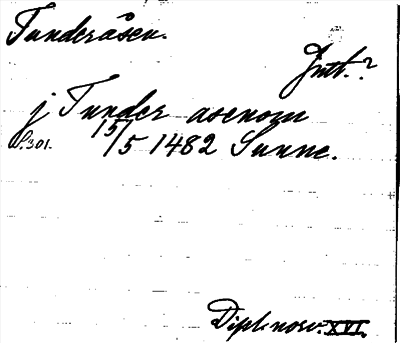 Tunderåsen.
Jmt.?
j Tunder asenom
S. 301. 15/5 1482 Sunne.
Dipl. norv. XVI.